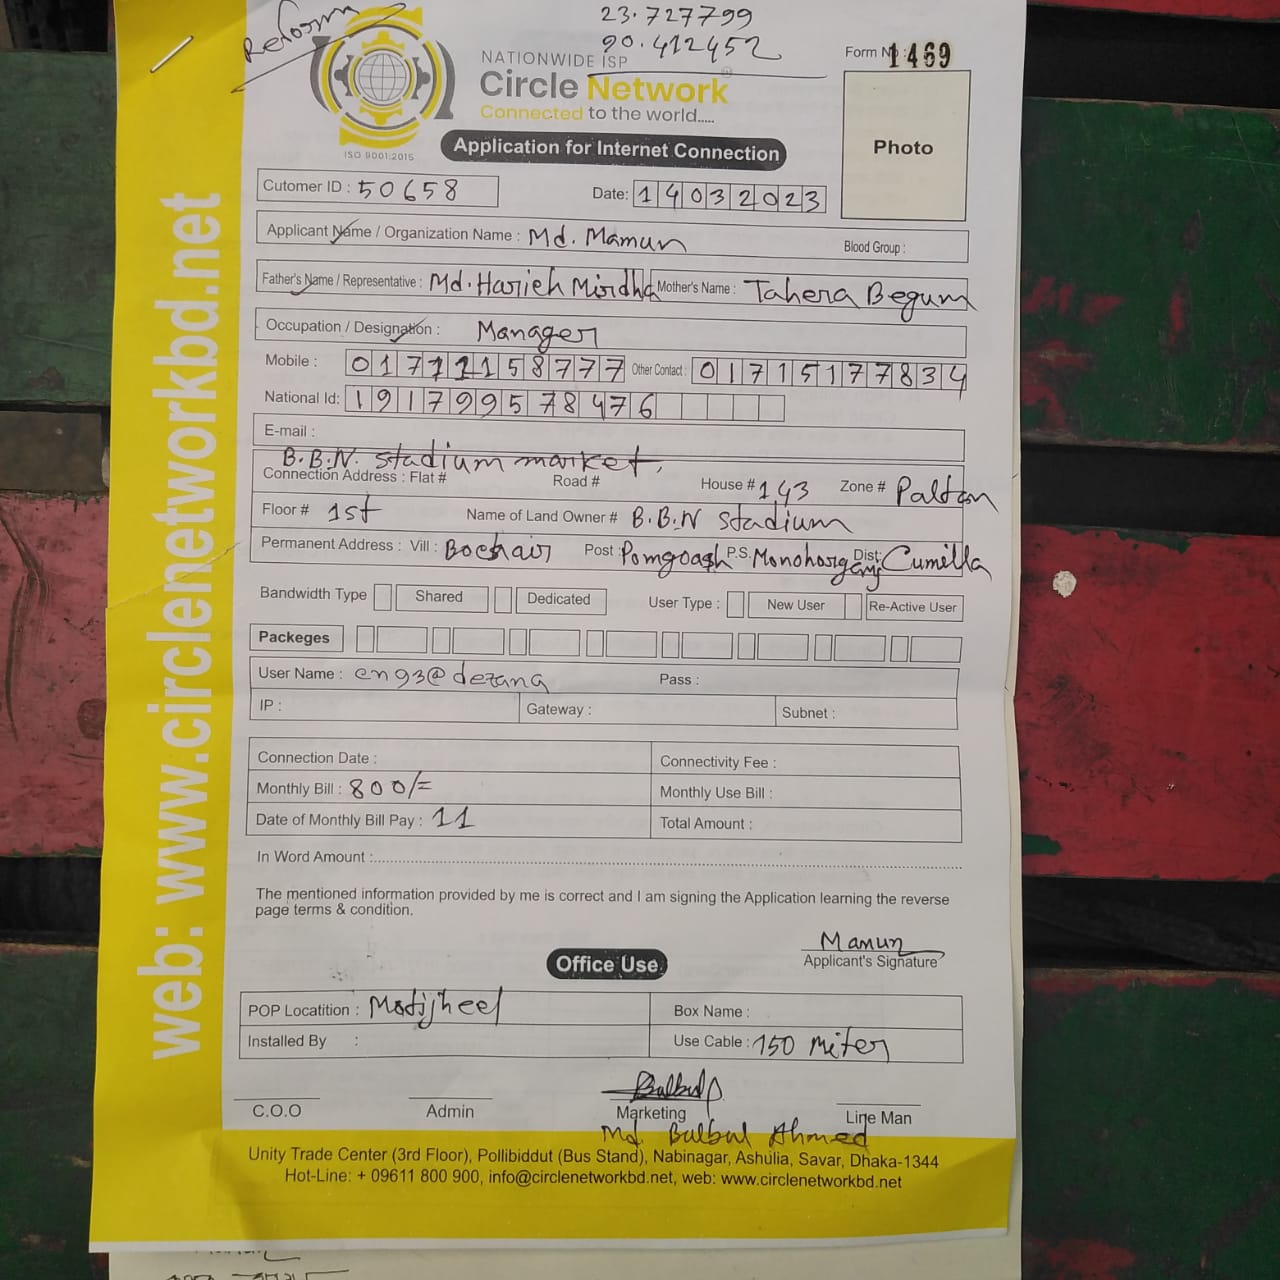 Reform
23.727799
90.412452
NATIONWIDE ISP
Circle Network
Connected to the world.....
ISO 9001:2015
Form No: 1469
Photo
Application for Internet Connection
Cutomer ID : 50658
Date: 14032023
Applicant Name / Organization Name : Md. Mamun
Blood Group :
Father's Name / Representative : Md. Harich Miridha Mother's Name : Tahera Begum
Occupation / Designation : Manager
Mobile : Other Contact : 01715177834
National Id: 191799578476
E-mail :
B.B.N. stadium market,
Connection Address : Flat # Road # House # 143 Zone # Paltan
Floor # 1st Name of Land Owner # B.B.N stadium
Permanent Address : Vill : Post : Pomgoagh P.S. Monohorganj Dist: Cumilla
Bandwidth Type Shared Dedicated User Type : New User Re-Active User
Packeges
User Name : eng3@dezana Pass :
IP : Gateway : Subnet :
Connection Date : Connectivity Fee :
Monthly Bill : 800/= Monthly Use Bill :
Date of Monthly Bill Pay : 11 Total Amount :
In Word Amount :
The mentioned information provided by me is correct and I am signing the Application learning the reverse
page terms & condition.
Mamun
Applicant's Signature
Office Use
POP Locatition : Motijheel Box Name :
Installed By : Use Cable : 150 miter
Bulbul
C.O.O Admin Marketing Line Man
Md. Bulbul Ahmed
Unity Trade Center (3rd Floor), Pollibiddut (Bus Stand), Nabinagar, Ashulia, Savar, Dhaka-1344
Hot-Line: + 09611 800 900, info@circlenetworkbd.net, web: www.circlenetworkbd.net
web: www.circlenetworkbd.net